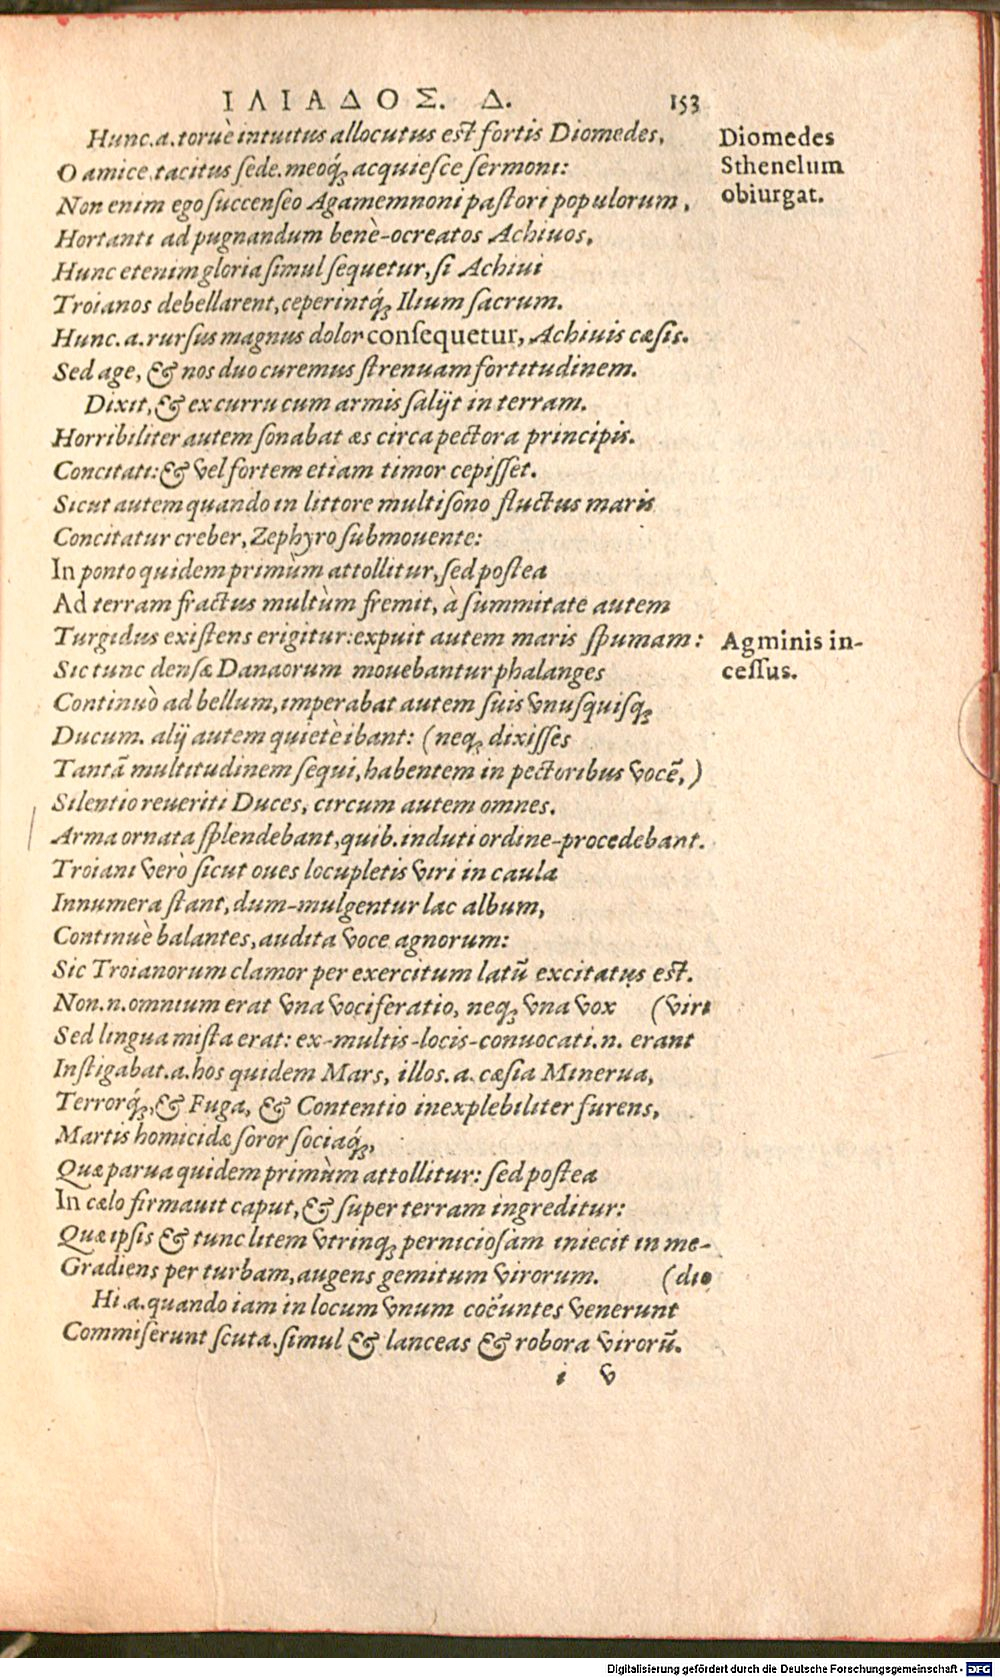 ΙΛΙΑΔΟΣ. Δ. 153
Hunc.a.toruè intuitus allocutus est fortis Diomedes,
O amice,tacitus sede.meoq́; acquiesce sermoni:
Non enim ego succenseo Agamemnoni pastori populorum,
Hortanti ad pugnandum benè-ocreatos Achiuos,
Hunc etenim gloria simul sequetur, si Achiui
Troianos debellarent,ceperintq́; Ilium sacrum.
Hunc.a.rursus magnus dolor consequetur, Achiuis cæsis.
Sed age, & nos duo curemus strenuam fortitudinem.
Dixit, & ex curru cum armis salijt in terram.
Horribiliter autem sonabat æs circa pectora principis.
Concitati:& vel fortem etiam timor cepisset.
Sicut autem quando in littore multisono fluctus maris
Concitatur creber, Zephyro submouente:
In ponto quidem primùm attollitur, sed postea
Ad terram fractus multùm fremit, à summitate autem
Turgidus existens erigitur:expuit autem maris spumam:
Sic tunc densæ Danaorum mouebantur phalanges
Continuò ad bellum, imperabat autem suis vnusquisq;
Ducum. alij autem quietè ibant: (neq; dixisses
Tantā multitudinem sequi, habentem in pectoribus vocē,)
Silentio reueriti Duces, circum autem omnes.
Arma ornata splendebant,quib.induti ordine-procedebant.
Troiani verò sicut oues locupletis viri in caula
Innumera stant, dum-mulgentur lac album,
Continuè balantes, audita voce agnorum:
Sic Troianorum clamor per exercitum latū excitatus est.
Non.n.omnium erat vna vociferatio, neq; vna vox (viri
Sed lingua mista erat: ex-multis-locis-conuocati.n. erant
Instigabat.a.hos quidem Mars, illos.a.cæsia Minerua,
Terrorq́;,& Fuga, & Contentio inexplebiliter furens,
Martis homicidæ soror sociaq́;,
Quæ parua quidem primùm attollitur: sed postea
In cælo firmauit caput, & super terram ingreditur:
Quæ ipsis & tunc litem vtrinq; perniciosam iniecit in me-
Gradiens per turbam, augens gemitum virorum. (dio
Hi.a.quando iam in locum vnum coëuntes venerunt
Commiserunt scuta.simul & lanceas & robora virorū.
i v
Diomedes
Sthenelum
obiurgat.
Agminis in-
cessus.
Digitalisierung gefördert durch die Deutsche Forschungsgemeinschaft - DFG